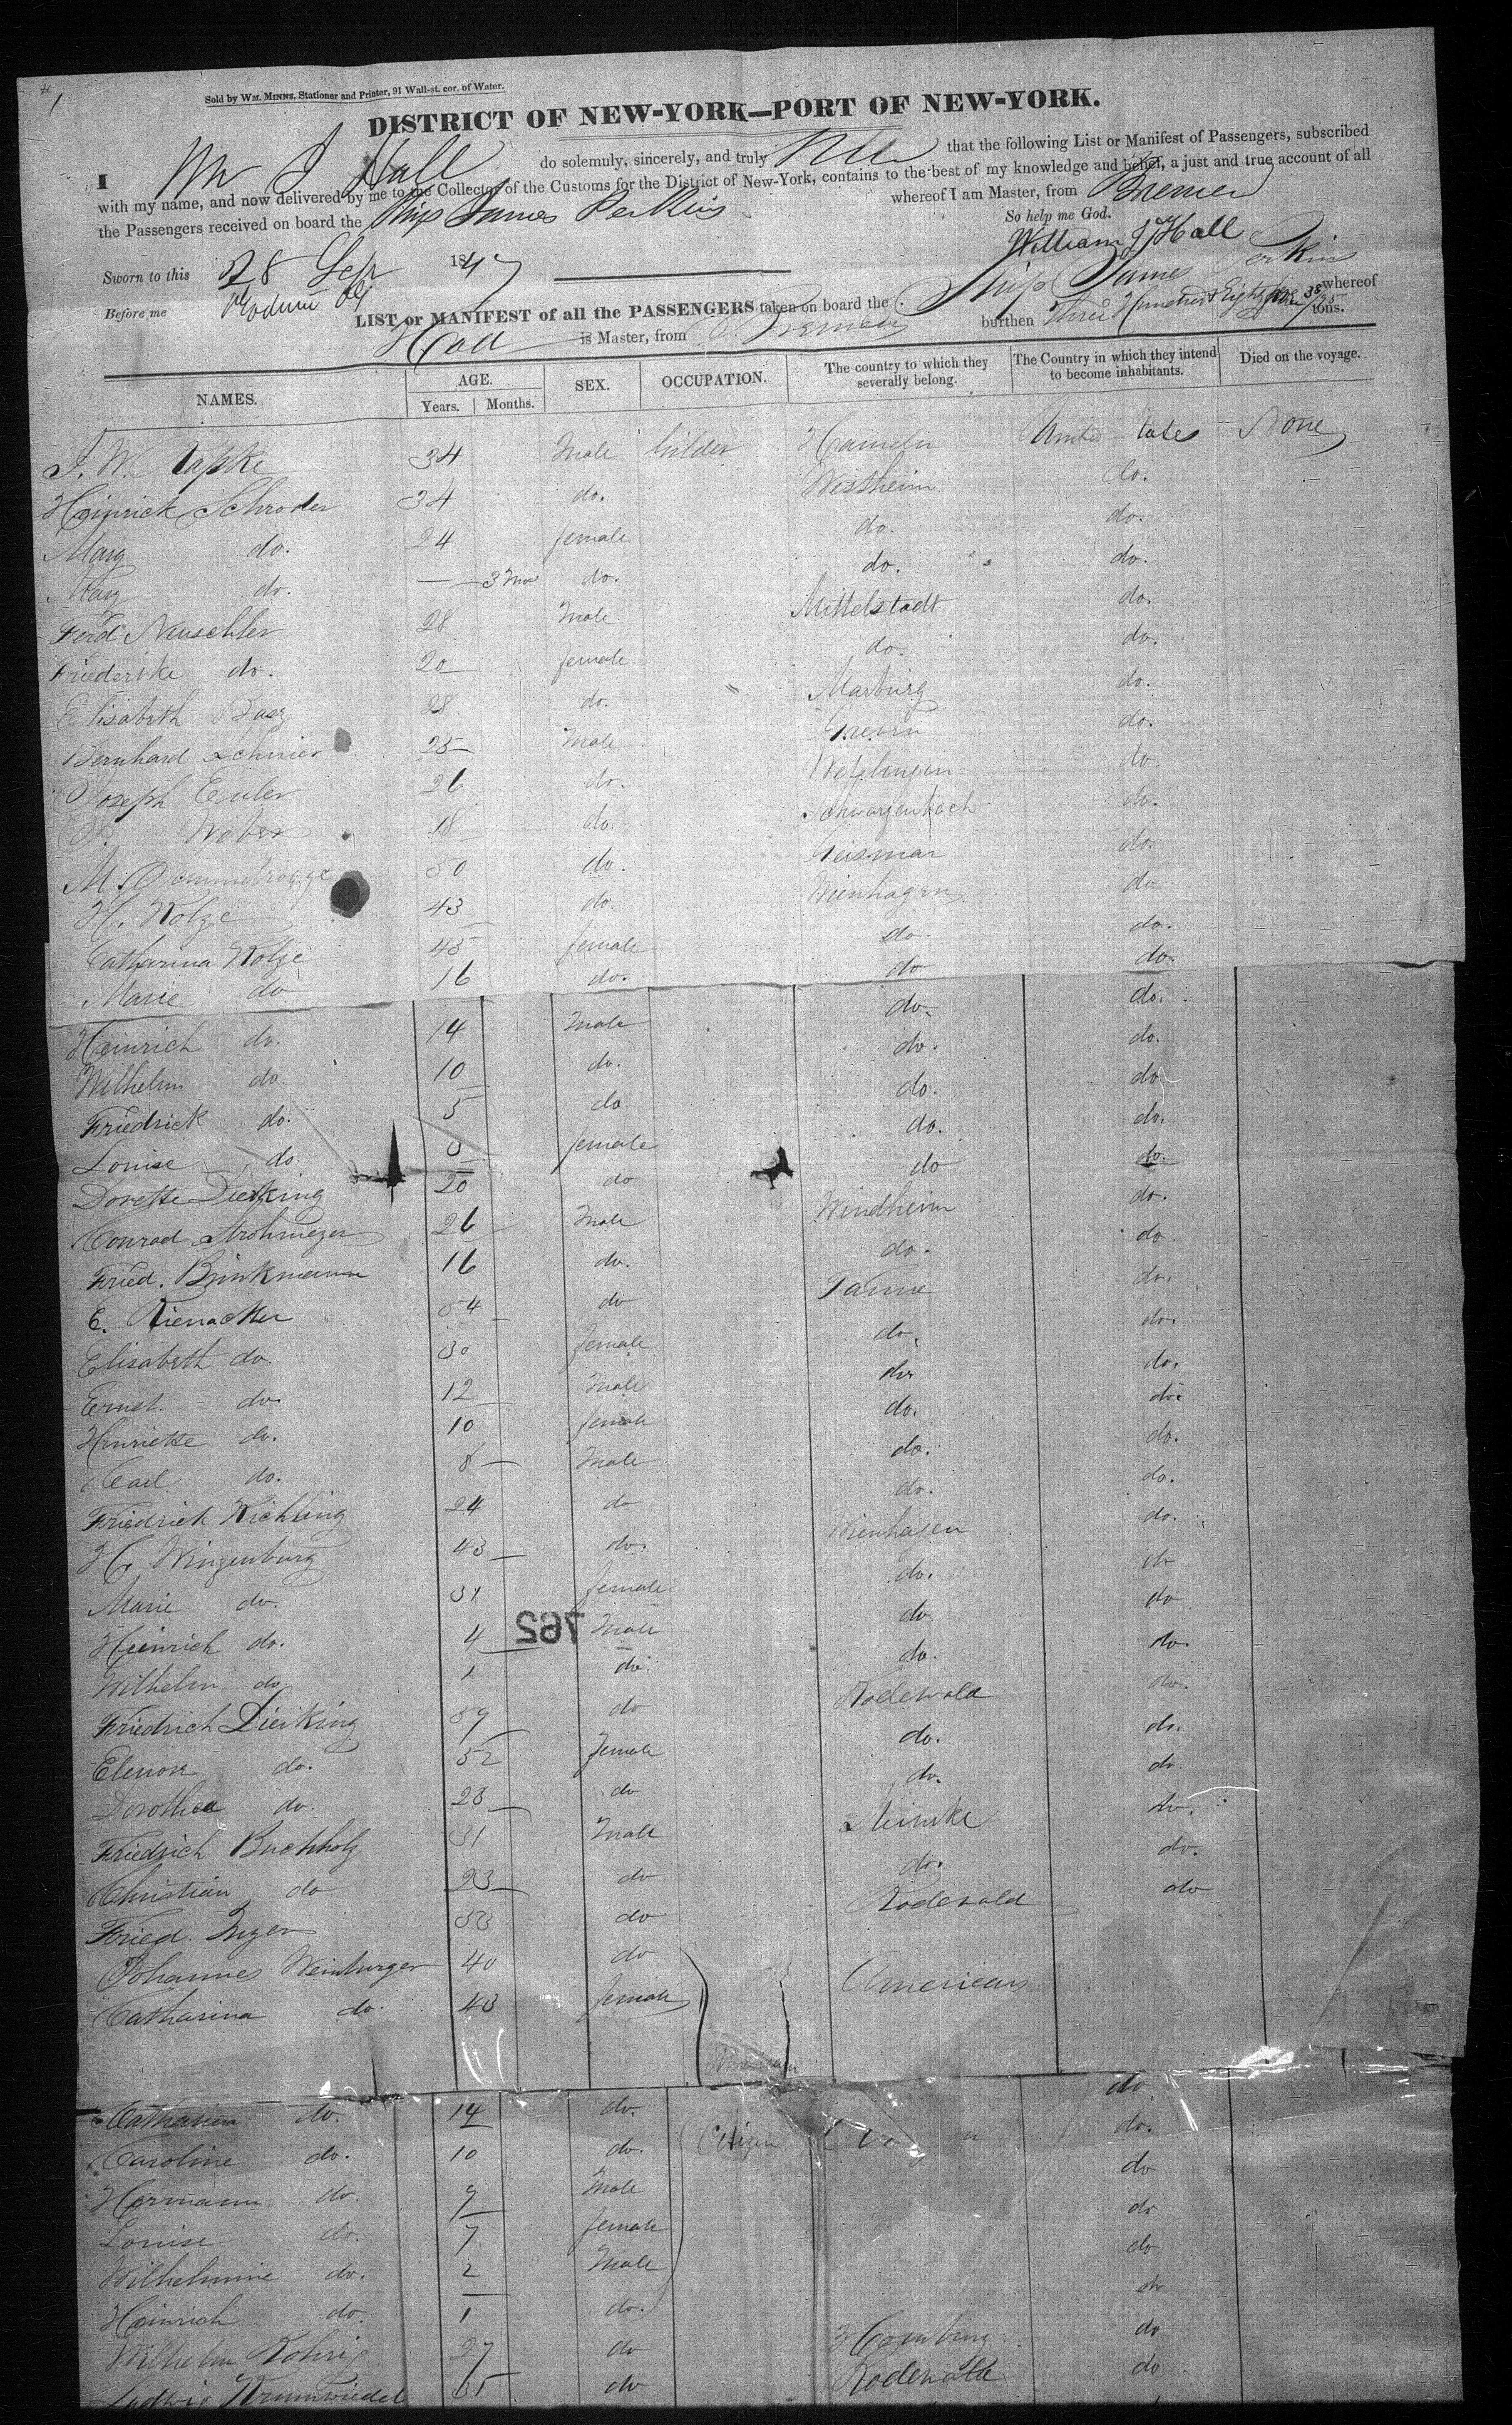 1
Sold by WM. MINNS, Stationer and Printer, 91 Wall-st. cor. of Water.
DISTRICT OF NEW-YORK—PORT OF NEW-YORK.
I Wm J Hall do solemnly, sincerely, and truly that the following List or Manifest of Passengers, subscribed
with my name, and now delivered by me to the Collector of the Customs for the District of New-York, contains to the best of my knowledge and belief, a just and true account of all
the Passengers received on board the Ship James Perkins whereof I am Master, from Bremen
So help me God.
William J Hall
Sworn to this 28 Sep 1847
Before me
LIST or MANIFEST of all the PASSENGERS taken on board the Ship James Perkins whereof
Hall is Master, from Bremen burthen Three Hundred & Eighty tons.
NAMES. AGE. SEX. OCCUPATION. The country to which they severally belong. The Country in which they intend to become inhabitants. Died on the voyage.
Years. Months.
J. W. Rapke 34 Male bilder Hameln United States None
Heinrick Schroder 34 do. Westheim do.
Mary do. 24 female do. do.
Mary do. — 3 Mos do. do. do.
Ferd Neuschler 28 Male Mittelstadt do.
Friederike do. 20 female do. do.
Elisabeth 28 do. Marburg do.
Bernhard Schnier 25 Male Greven do.
Joseph Euler 26 do. do.
Weber 18 do. Schwarzenbach do.
M. 50 do. Geismar do.
H. Nolze 43 do. Wienhagen do
Catharina Nolze 45 female do. do.
Marie do 16 do. do do.
Heinrich do. 14 Male do. do.
Wilhelm do 10 do. do. do.
Friedrick do. 5 do. do. do
Louise do. 3 female do. do.
Dorette Dierking 20 do do do.
Conrad Strohmeyer 26 Male Windheim do.
Fried. Brinkmann 16 do. do. do.
E. Rienacker 34 do Tanne do.
Elisabeth do. 30 female do. do.
Ernst do. 12 Male do do.
Henriette do. 10 female do. do.
Carl do. 8 Male do. do.
Friedrich Wichling 24 do do. do.
H. Winzenburg 43 do. Wienhagen do.
Marie do. 31 female do. do
Heinrich do. 4 Male do do
Wilhelm do 1 do. do. do.
762
Friedrich Dierking 59 do Rodewald do.
Elenore do. 52 female do. do.
Dorothea do. 23 do do. do.
Friedrich Buchholz 31 Male Steimke do.
Christian do 23 do do. do.
Fried. 58 do Rodewald do
Johannes Weinburger 40 do American
Catharina do. 43 female
Catharina do. 14 do. do.
Caroline do. 10 do. Citizen do.
Hermann do. 9 Male do
Louise do. 7 female do
Wilhelmine do. 2 Male do
Heinrich do. 1 do. do
Wilhelm Rohrig 27 do Homburg do
Ludwig Krumwiedel 35 do Rodewald do